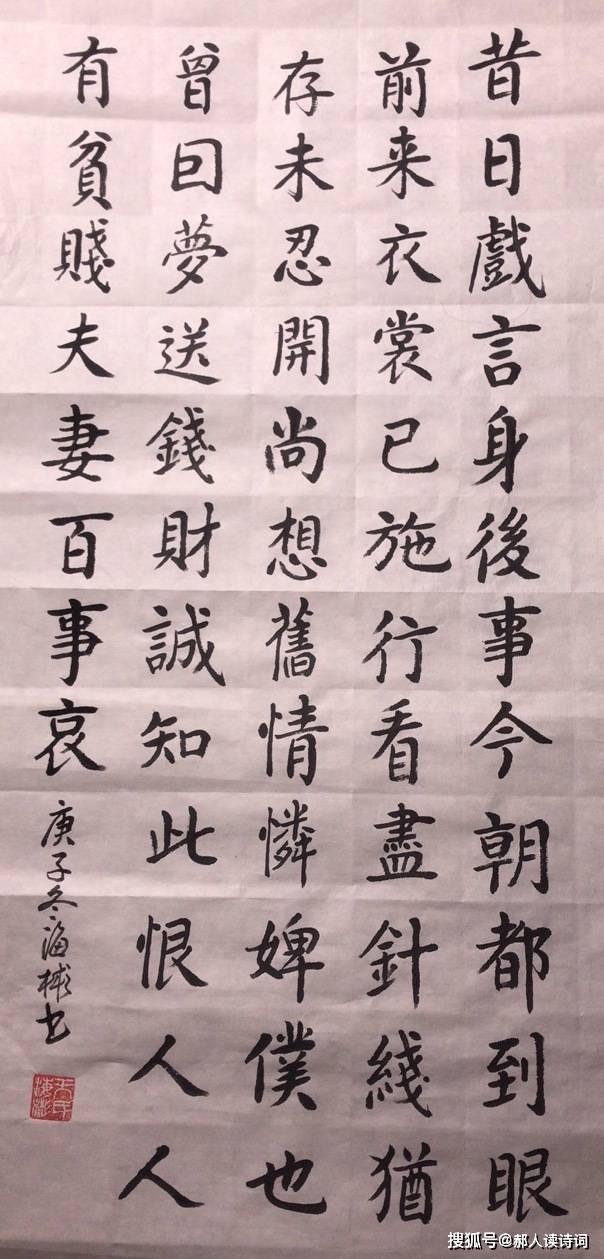 昔日戲言身後事今朝都到眼
前来衣裳已施行看盡針綫猶
存未忍開尚想舊情憐婢僕也
曾回夢送錢財誠知此恨人人
有貧賤夫妻百事哀
庚子冬海书
搜狐号@郝人读诗词